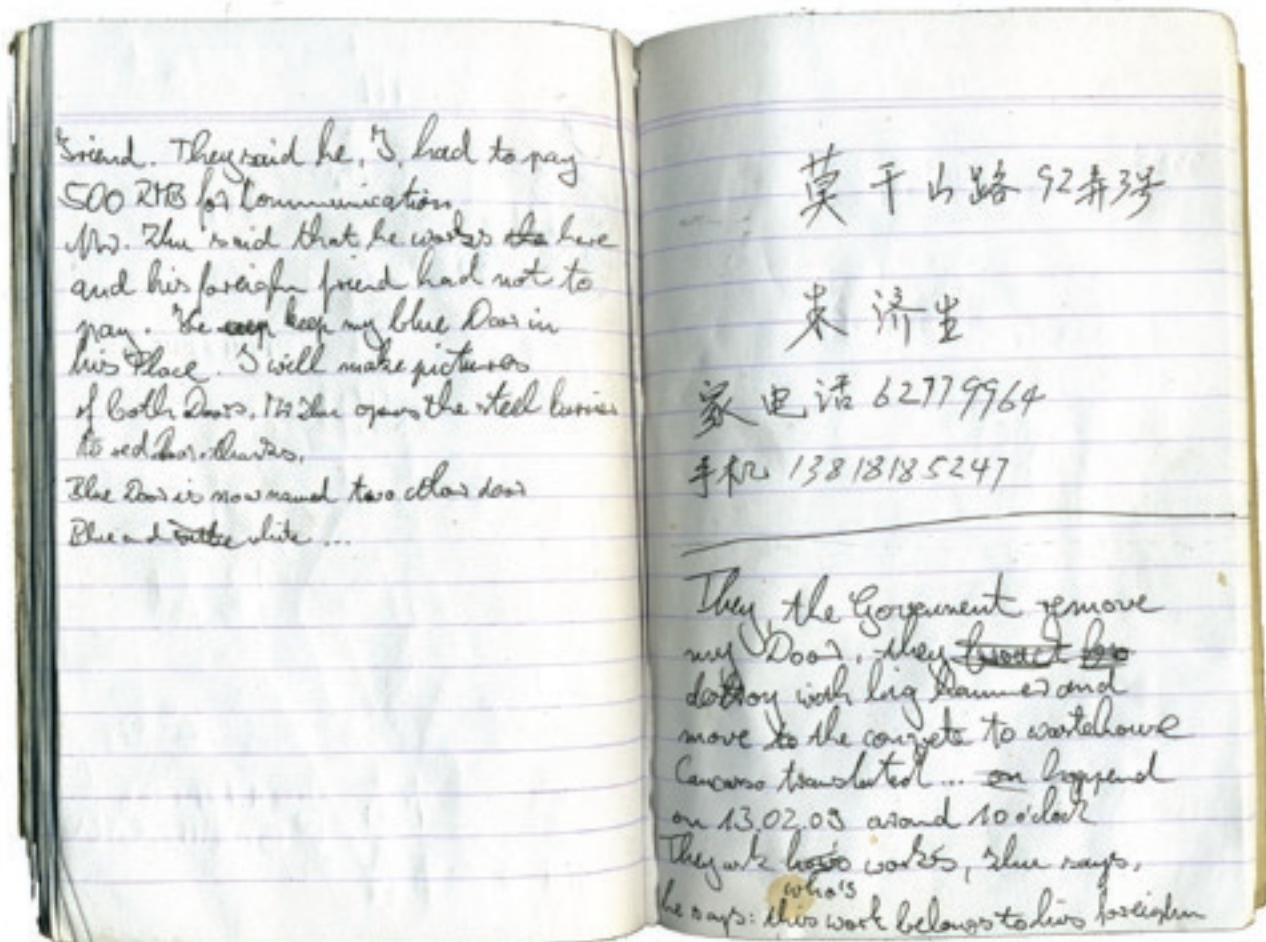 friend. They said he, I, had to pay
500 RMB for Communication
Mr. Zhu said that he works the here
and his foreighn friend had not to
pay. He keep my blue Door in
his Place. I will make pictures
of both Doors. Mr Zhu opens the steel barrier
to red Door. thanks.
Blue Door is now named two door
Blue and white ...
莫干山路 92弄3号
朱济生
家电话 62779964
手机 13818185247
They, the Government remove
my Door, they
destroy with big Hammer and
move to the to wastehouse
translated ... on happend
on 13.02.09 around 10 o'clock
They ask works, Zhu says,
who's
he says: this work belongs to his foreighn